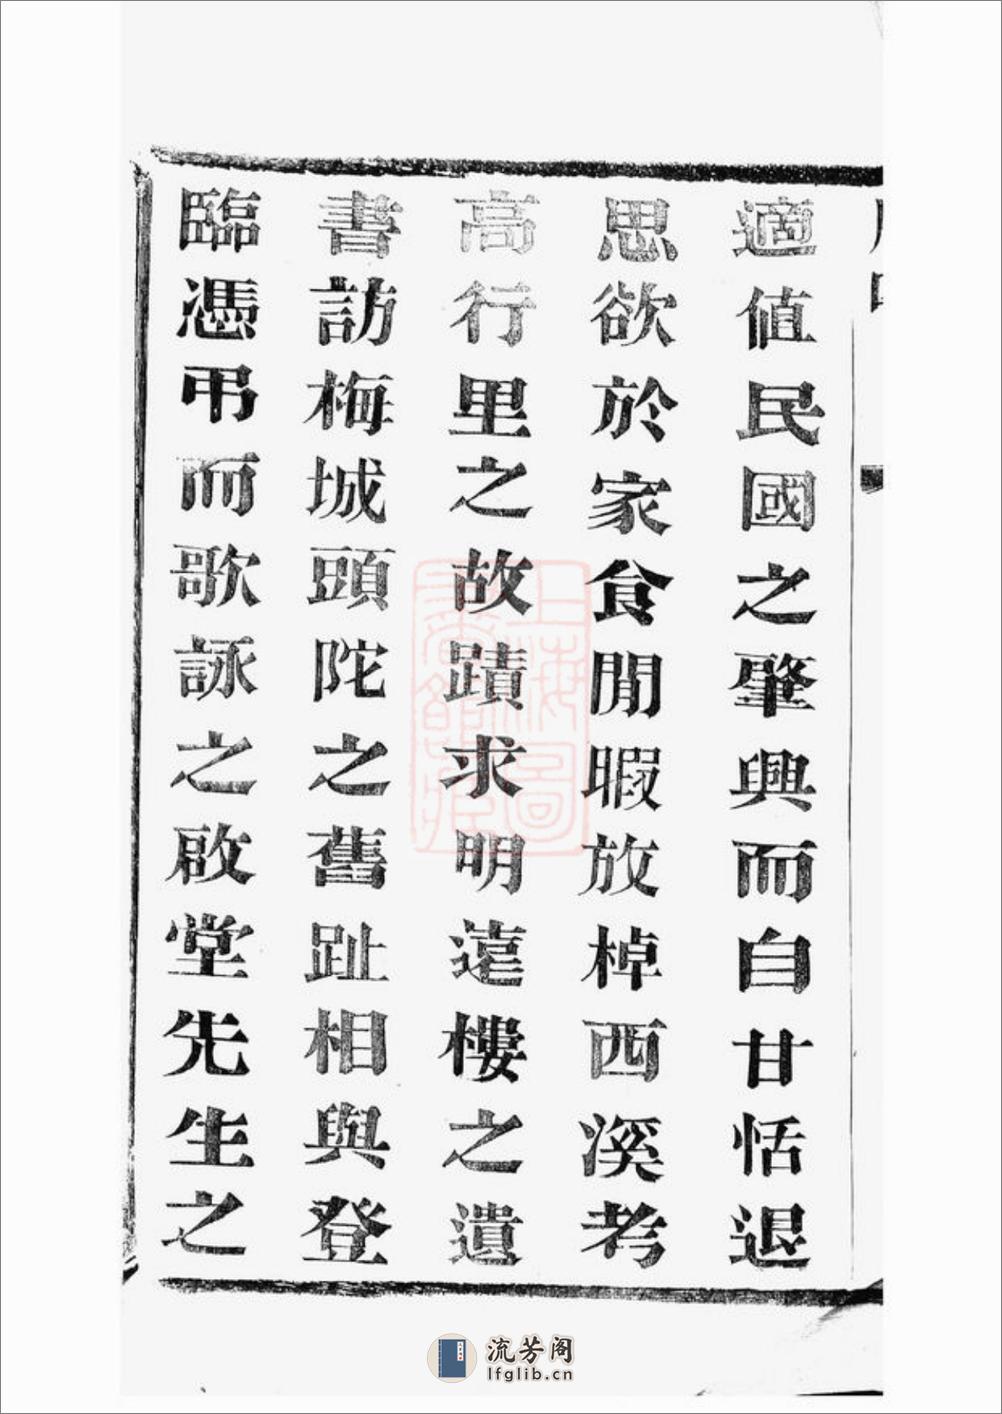 適值民國之肇興而自甘恬退
思欲於家食閒暇放棹西溪考
高行里之故蹟求明蘧樓之遺
書訪梅城頭陀之舊趾相與登
臨憑弔而歌詠之啟堂先生之
上海圖書館藏
流芳阁
lfglib.cn